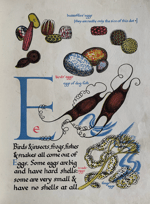 butterflies' eggs
(they are really only the size of this dot ·)
egg of dog fish
E e
Birds & insects, frogs, fishes
& snakes all come out of
Eggs. Some eggs are big
and have hard shells
some are very small &
have no shells at all.